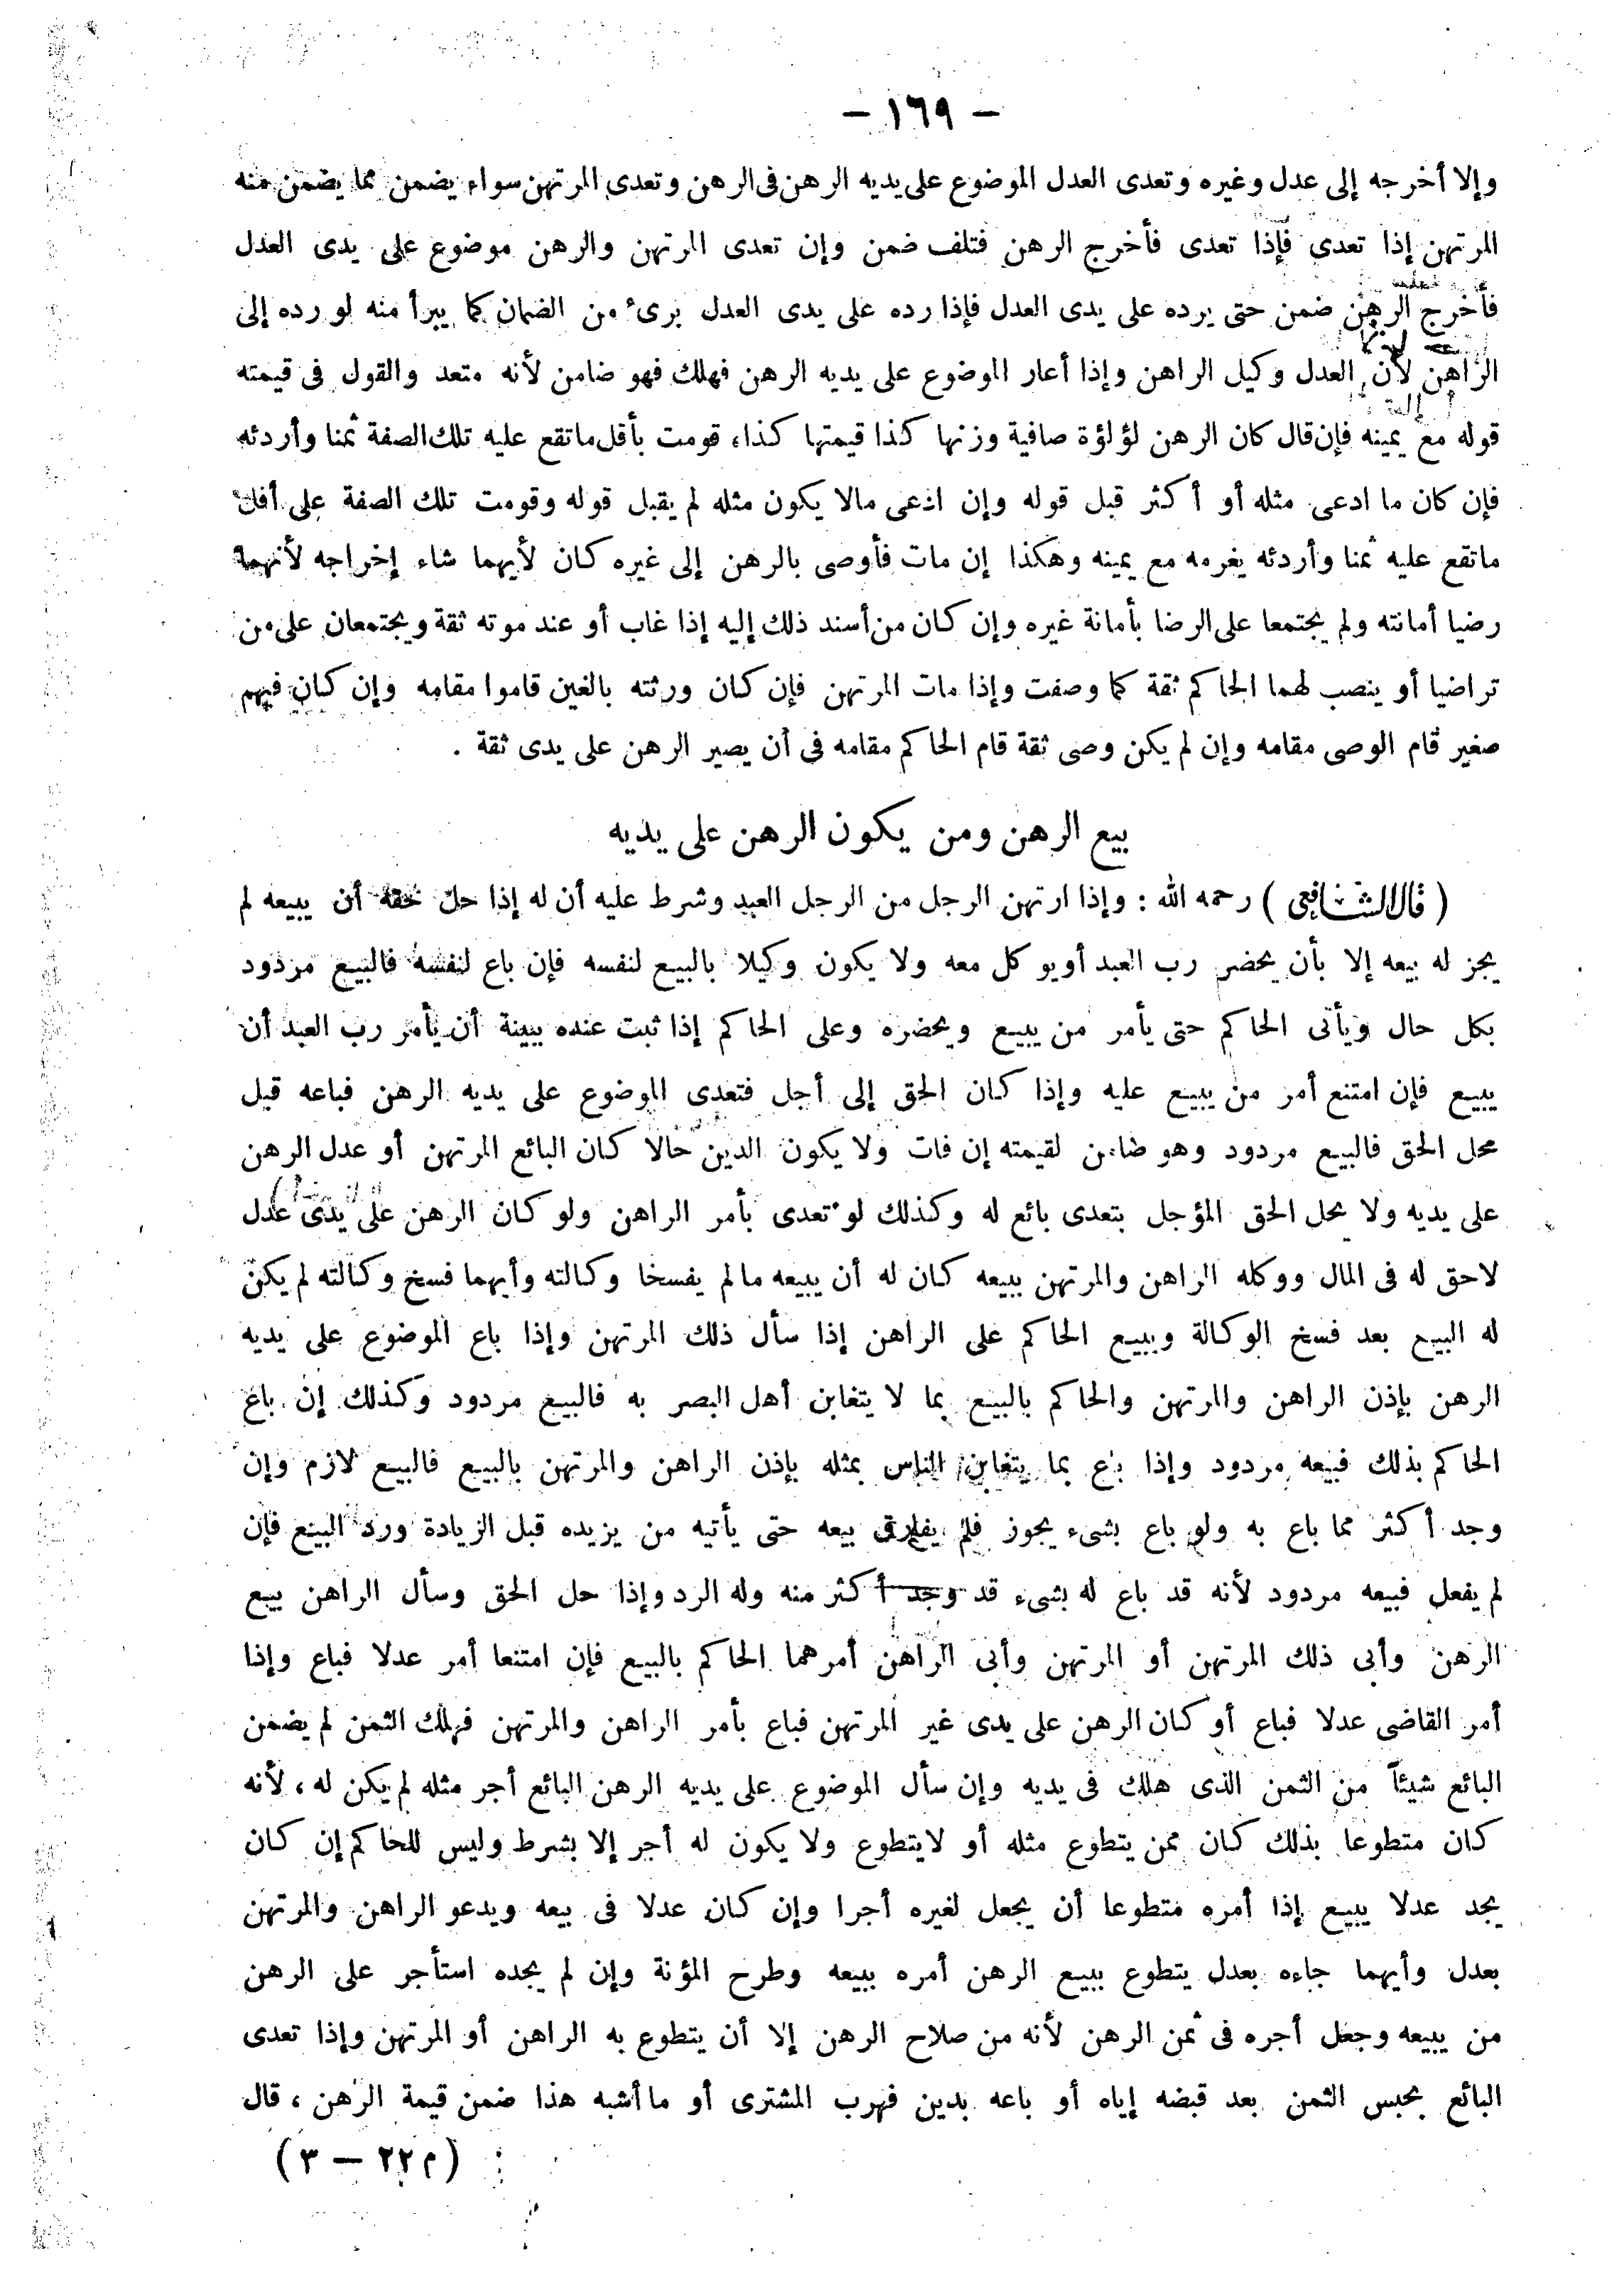 — ١٦٩ —
وإلا أخرجه إلى عدل وغيره وتعدى العدل الموضوع على يديه الرهن فى الرهن وتعدى المرتهن سواء يضمن مما يضمن منه
المرتهن إذا تعدى فإذا تعدى فأخرج الرهن فتلف ضمن وإن تعدى المرتهن والرهن موضوع على يدى العدل
فأخرج الرهن ضمن حتى يرده على يدى العدل فإذا رده على يدى العدل برىء من الضمان كما يبرأ منه لو رده إلى
الراهن لأن العدل وكيل الراهن وإذا أعار الموضوع على يديه الرهن فهلك فهو ضامن لأنه متعد والقول فى قيمته
قوله مع يمينه فإن قال كان الرهن لؤلؤة صافية وزنها كذا قيمتها كذا، قومت بأقل ماتقع عليه تلك الصفة ثمنا وأردئه
فإن كان ما ادعى مثله أو أكثر قبل قوله وإن ادعى مالا يكون مثله لم يقبل قوله وقومت تلك الصفة على أقل
ماتقع عليه ثمنا وأردئه يغرمه مع يمينه وهكذا إن مات فأوصى بالرهن إلى غيره كان لأيهما شاء إخراجه لأنهما
رضيا أمانته ولم يجتمعا على الرضا بأمانة غيره وإن كان من أسند ذلك إليه إذا غاب أو عند موته ثقة ويجتمعان على من
تراضيا أو ينصب لهما الحاكم ثقة كما وصفت وإذا مات المرتهن فإن كان ورثته بالغين قاموا مقامه وإن كان فيهم
صغير قام الوصى مقامه وإن لم يكن وصى ثقة قام الحاكم مقامه فى أن يصير الرهن على يدى ثقة .
بيع الرهن ومن يكون الرهن على يديه
(قال الشافعى) رحمه الله : وإذا ارتهن الرجل من الرجل العبد وشرط عليه أن له إذا حل حقه أن يبيعه لم
يجز له بيعه إلا بأن يحضر رب العبد أويوكل معه ولا يكون وكيلا بالبيع لنفسه فإن باع لنفسه فالبيع مردود
بكل حال ويأتى الحاكم حتى يأمر من يبيع ويحضره وعلى الحاكم إذا ثبت عنده ببينة أن يأمر رب العبد أن
يبيع فإن امتنع أمر من يبيع عليه وإذا كان الحق إلى أجل فتعدى الموضوع على يديه الرهن فباعه قبل
محل الحق فالبيع مردود وهو ضامن لقيمته إن فات ولا يكون الدين حالا كان البائع المرتهن أو عدل الرهن
على يديه ولا يحل الحق المؤجل بتعدى بائع له وكذلك لو تعدى بأمر الراهن ولو كان الرهن على يدى عدل
لاحق له فى المال ووكله الراهن والمرتهن ببيعه كان له أن يبيعه مالم يفسخا وكالته وأيهما فسخ وكالته لم يكن
له البيع بعد فسخ الوكالة ويبيع الحاكم على الراهن إذا سأل ذلك المرتهن وإذا باع الموضوع على يديه
الرهن بإذن الراهن والمرتهن والحاكم بالبيع بما لا يتغابن أهل البصر به فالبيع مردود وكذلك إن باع
الحاكم بذلك فبيعه مردود وإذا باع بما يتغابن الناس بمثله بإذن الراهن والمرتهن بالبيع فالبيع لازم وإن
وجد أكثر مما باع به ولو باع بشىء يجوز فلم يفارق بيعه حتى يأتيه من يزيده قبل الزيادة ورد البيع فإن
لم يفعل فبيعه مردود لأنه قد باع له بشىء قد وجد أكثر منه وله الرد وإذا حل الحق وسأل الراهن بيع
الرهن وأبى ذلك المرتهن أو المرتهن وأبى الراهن أمرهما الحاكم بالبيع فإن امتنعا أمر عدلا فباع وإذا
أمر القاضى عدلا فباع أو كان الرهن على يدى غير المرتهن فباع بأمر الراهن والمرتهن فهلك الثمن لم يضمن
البائع شيئاً من الثمن الذى هلك فى يديه وإن سأل الموضوع على يديه الرهن البائع أجر مثله لم يكن له ، لأنه
كان متطوعا بذلك كان ممن يتطوع مثله أو لايتطوع ولا يكون له أجر إلا بشرط وليس للحاكم إن كان
يجد عدلا يبيع إذا أمره متطوعا أن يجعل لغيره أجرا وإن كان عدلا فى بيعه ويدعو الراهن والمرتهن
بعدل وأيهما جاءه بعدل يتطوع ببيع الرهن أمره ببيعه وطرح المؤنة وإن لم يجده استأجر على الرهن
من يبيعه وجعل أجره فى ثمن الرهن لأنه من صلاح الرهن إلا أن يتطوع به الراهن أو المرتهن وإذا تعدى
البائع بحبس الثمن بعد قبضه إياه أو باعه بدين فهرب المشترى أو ما أشبه هذا ضمن قيمة الرهن ، قال
(م ٢٢ — ٣)